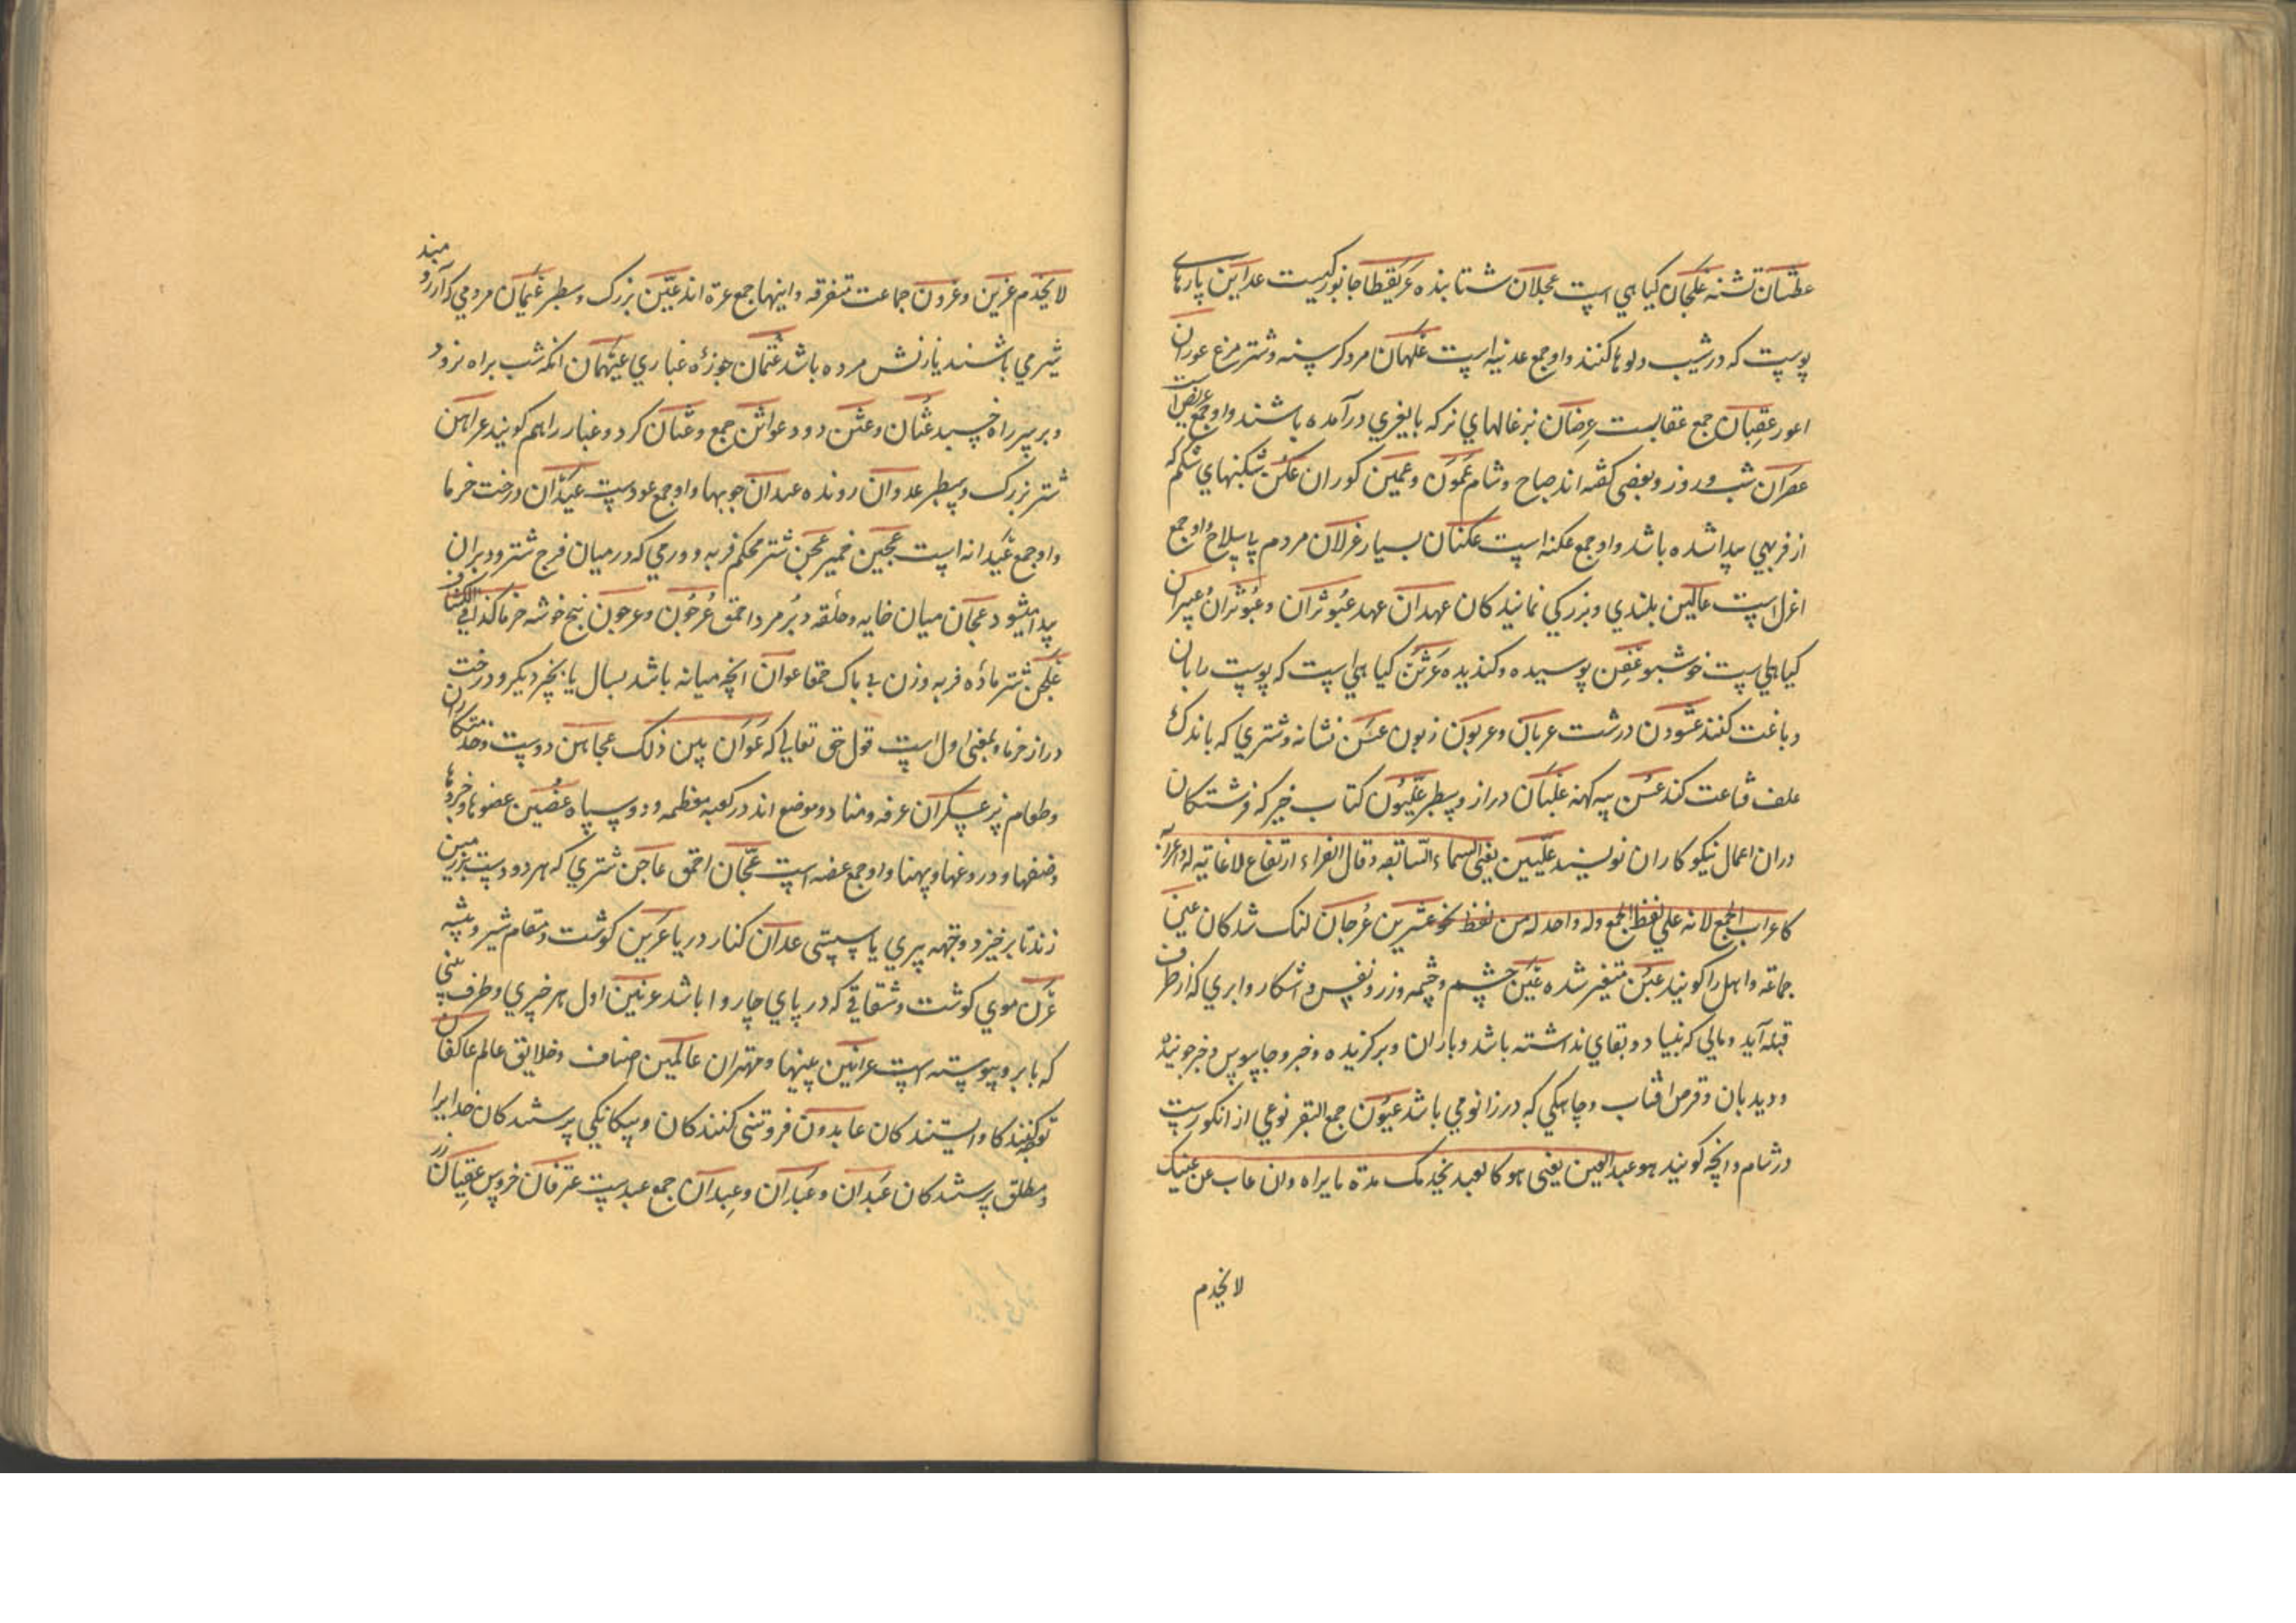 عطشان تشنه علجان کیاهي است عجلان شتابنده عریقطا جانورکیست عداین پارهای
پوست که در شیب دلوها کنند واو جمع عدنیه است علهان مرد کرسنه وشتر مرغ عوران
اعور عقبان جمع عقابست عرضان بزغالهاي نر که بایغري درآمده باشند واو جمع عریض است
عصران شب وروز وبعضی کفته اند صباح وشام عمون وعمین کوران عکن شکنهاي شکم که
از فربهي پیدا شده باشد واو جمع عکنه است عکنان بسیار عزلان مردم بی سلاح واو جمع
اعزل است عالین بلندي وبزرکي نمایندکان عهدان عهد عبوثران وعبوثران عبیثران
کیاهي است خوشبو عفن پوسیده وکندیده عرثن کیاهي است که پوست را بان
دباغت کنند عشوزن درشت عربان وعربون زبون عسن نشانه وشتري که باندک
علف قناعت کند عسن پیه کهنه علبان دراز وسطبر علیون کتاب خیر که فرشتکان
دران اعمال نیکوکاران نویسند علیین یعنی السماء السابعه وقال الفراء ارتفاع لا غایه له واعرابه
کاعراب الجمع لانه علي لفظ الجمع وله واحد له من لفظ نحو عشرین عرجان لنک شدکان عین
جماعه واهل را کویند عین متغیر شده عین چشم وچشمه وزر ونفس واشکار وابري که از طرف
قبله آید ومالي که بنیاد وبقاي نداشته باشد وباران وبرکزیده وخبر وجاسوس وخبر جوینده
ودیدبان وقرص افتاب وچاهکي که در زانو مي باشد عیون جمع البقر نوعي از انکورست
در شام وانچه کویند هو عبد العین یعنی هو کالعبد یخدمک مدة مایراه وان غاب عن عینک
لا یخدم
لا یخدم عزین وعزون جماعت متفرقه واینها جمع عزة اند عین بزرک وسطبر عیمان مردمي که آرزومند
شیر مي باشند یا زنش مرده باشد عثمان جوزه غباري عیهمان انکه شب براه نرود
وبر سر راه خسبد عثان وعثن دود عواثن جمع وعثان کرد وغبار را هم کویند عراهن
شتر بزرک وسطبر عدوان رونده عیدان چوبها واو جمع عودست عیدان درخت خرما
واو جمع عیدانه است عجین خمیر عجن شتر محکم فربه وورمي که در میان فرج شتر ودبر ان
پیدا میشود عجان میان خایه وحلقه دبر مرد احمق عرجون وعرجون بیخ خوشه خرما کذا فی الکشاف
علجن شتر ماده فربه وزن بی باک حمقا عوان انچه میانه باشد بسال یا بچیز دیکر ودرخت
دراز خرما وبمعنی اول است قول حق تعالي که عوان بین ذلک عجاهن دوست وخدمتکاران
وطعام پز عسکران عرفه ومنا دو موضع اند در کعبه معظمه ودو سپاه عضین عضوها وجزوها
وضنفها ودروغها وپهنا واو جمع عضه است عجان احمق عاجن شتري که هر دو دست بزمین
زند تا برخیزد وجهه پیري یا سستی عدان کنار دریا عرین کوشت ومقام شیر وبیشه
عرن موي کوشت وشقاقي که در پاي چاروا باشد عرنین اول هر چیزي وطرف بینی
که بابرو پیوسته است عرانین بینیها ومهتران عالمین اصناف وخلایق عالم عاکفان
توکنندکان وایستندکان عابدون فروتنی کنندکان وبیکانکي پرستندکان خدایرا
ومطلق پرستندکان عبدان وعبدان وعبدان جمع عبدست عترفان خروس عقیان زر